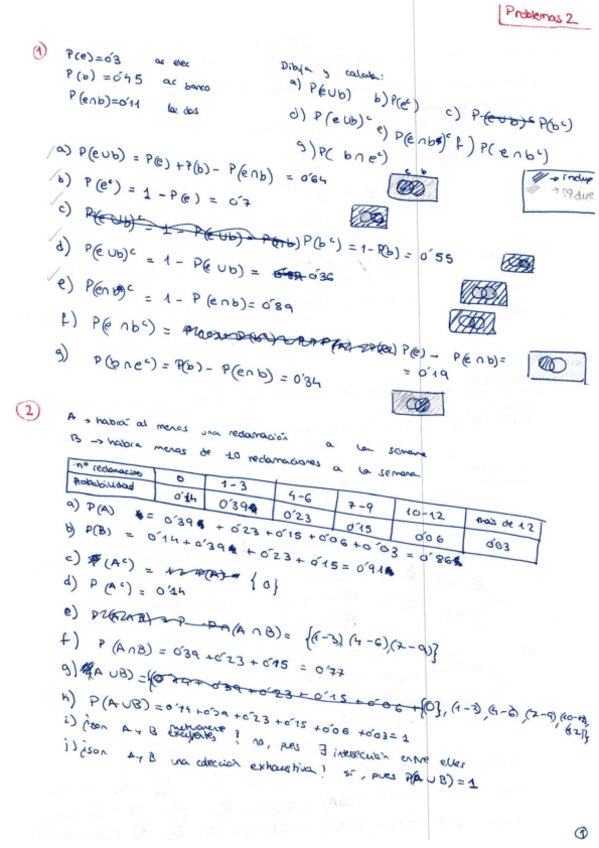 Problemas 2
1
P(e)=0'3 ac elec
P(b) =0'45 ac banco
P(e∩b)=0'11 los dos
Dibuja y calcula:
a) P(e∪b) b) P(eᶜ) c) P(e∪b)ᶜ P(bᶜ)
d) P(e∪b)ᶜ e) P(e∩b)ᶜ f) P(e∩bᶜ)
g) P(b∩eᶜ)
e b
→ incluye
a) P(e∪b) = P(e) + P(b) - P(e∩b) = 0'64
b) P(eᶜ) = 1 - P(e) = 0'7
c) P(e∪b)ᶜ = 1 - P(e∪b) = P(bᶜ) = 1-P(b) = 0'55
d) P(e∪b)ᶜ = 1 - P(e∪b) = 0'36
e) P(e∩b)ᶜ = 1 - P(e∩b) = 0'89
f) P(e∩bᶜ) = P(e) - P(e∩b) =
= 0'19
g) P(b∩eᶜ) = P(b) - P(e∩b) = 0'34
2
A → habrá al menos una reclamación a la semana
B → habra menos de 10 reclamaciones a la semana
nº reclamacion 0 1-3 4-6 7-9 10-12 mais de 12
Probabilidad 0'14 0'39 0'23 0'15 0'06 0'03
a) P(A) = 0'39 + 0'23 + 0'15 + 0'06 + 0'03 = 0'86
b) P(B) = 0'14 + 0'39 + 0'23 + 0'15 = 0'91
c) (Aᶜ) = 1-P(A) = {0}
d) P(Aᶜ) = 0'14
e) (A∩B) = {(1-3), (4-6), (7-9)}
f) P(A∩B) = 0'39 + 0'23 + 0'15 = 0'77
g) (A∪B) = {(0'14 + 0'39 + 0'23 + 0'15 + 0'06 + {0}, (1-3), (4-6), (7-9), (10-12),
(12)}
h) P(A∪B) = 0'14 + 0'39 + 0'23 + 0'15 + 0'06 + 0'03 = 1
i) ¿son A y B mutuamente excluyentes? no, pues ∃ intersección entre ellas
j) ¿son A y B una colección exhaustiva? sí, pues P(A∪B) = 1
1